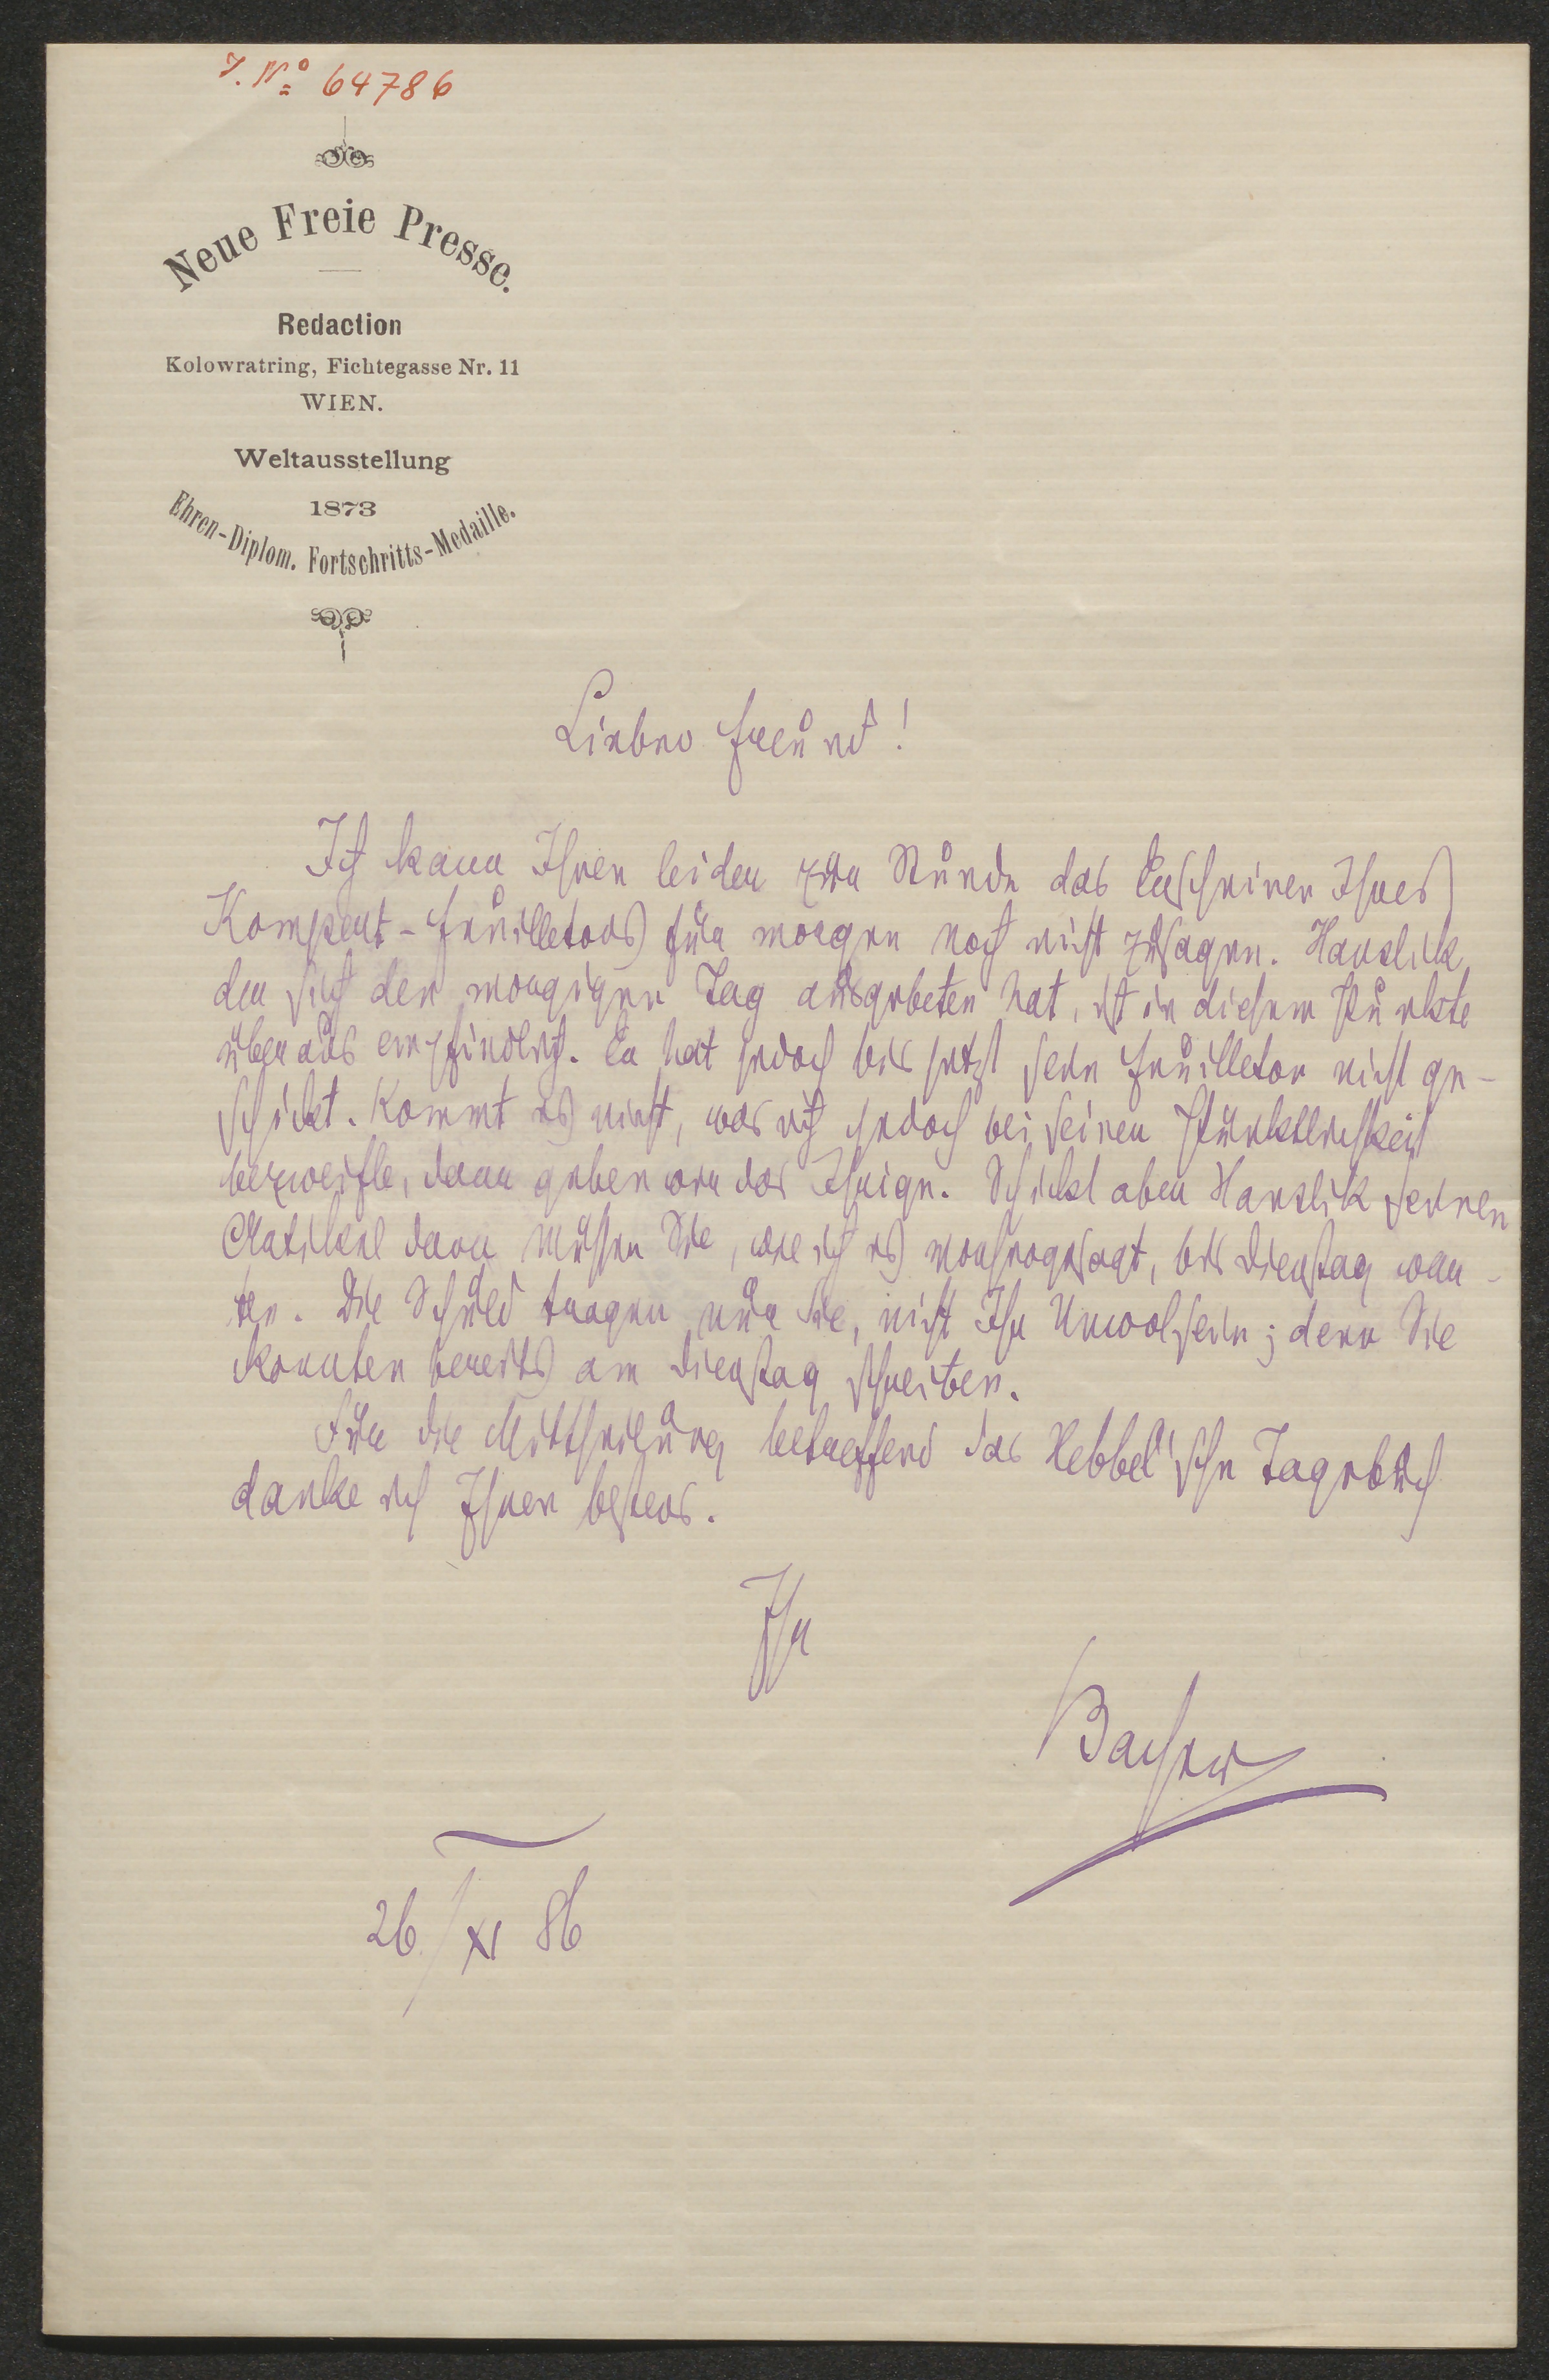 I. Nº 64786
Neue Freie Presse.
Redaction
Kolowratring, Fichtegasse Nr. 11
WIEN.
Weltausstellung
1873
Ehren-Diplom. Fortschritts-Medaille.
Lieber Freund!
Ich kann Ihnen leider zur Stunde das Erscheinen Ihres
Kompert-Feuilletons für morgen noch nicht zusagen. Hanslick
der sich den morgigen Tag ausgebeten hat, ist in diesem Punkte
überaus empfindlich. Er hat jedoch bis jetzt sein Feuilleton nicht ge-
schickt. Kommt es nicht, was ich jedoch bei seiner Pünktlichkeit
bezweifle, dann geben wir das Ihrige. Schickt aber Hanslik seinen
Artikel dann müssen Sie, wie ich es vorhergesagt, bis Dienstag war-
ten. Die Schuld tragen nur Sie, nicht Ihr Unwolsein; denn Sie
konnten bereits am Dienstag schreiben.
Für die Mittheilung betreffend das Hebbel'sche Tagebuch
danke ich Ihnen bestens.
Ihr
Bacher
26/XI 86